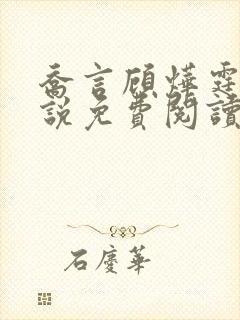 喬言顧燁霆
說免費閱讀
石慶華